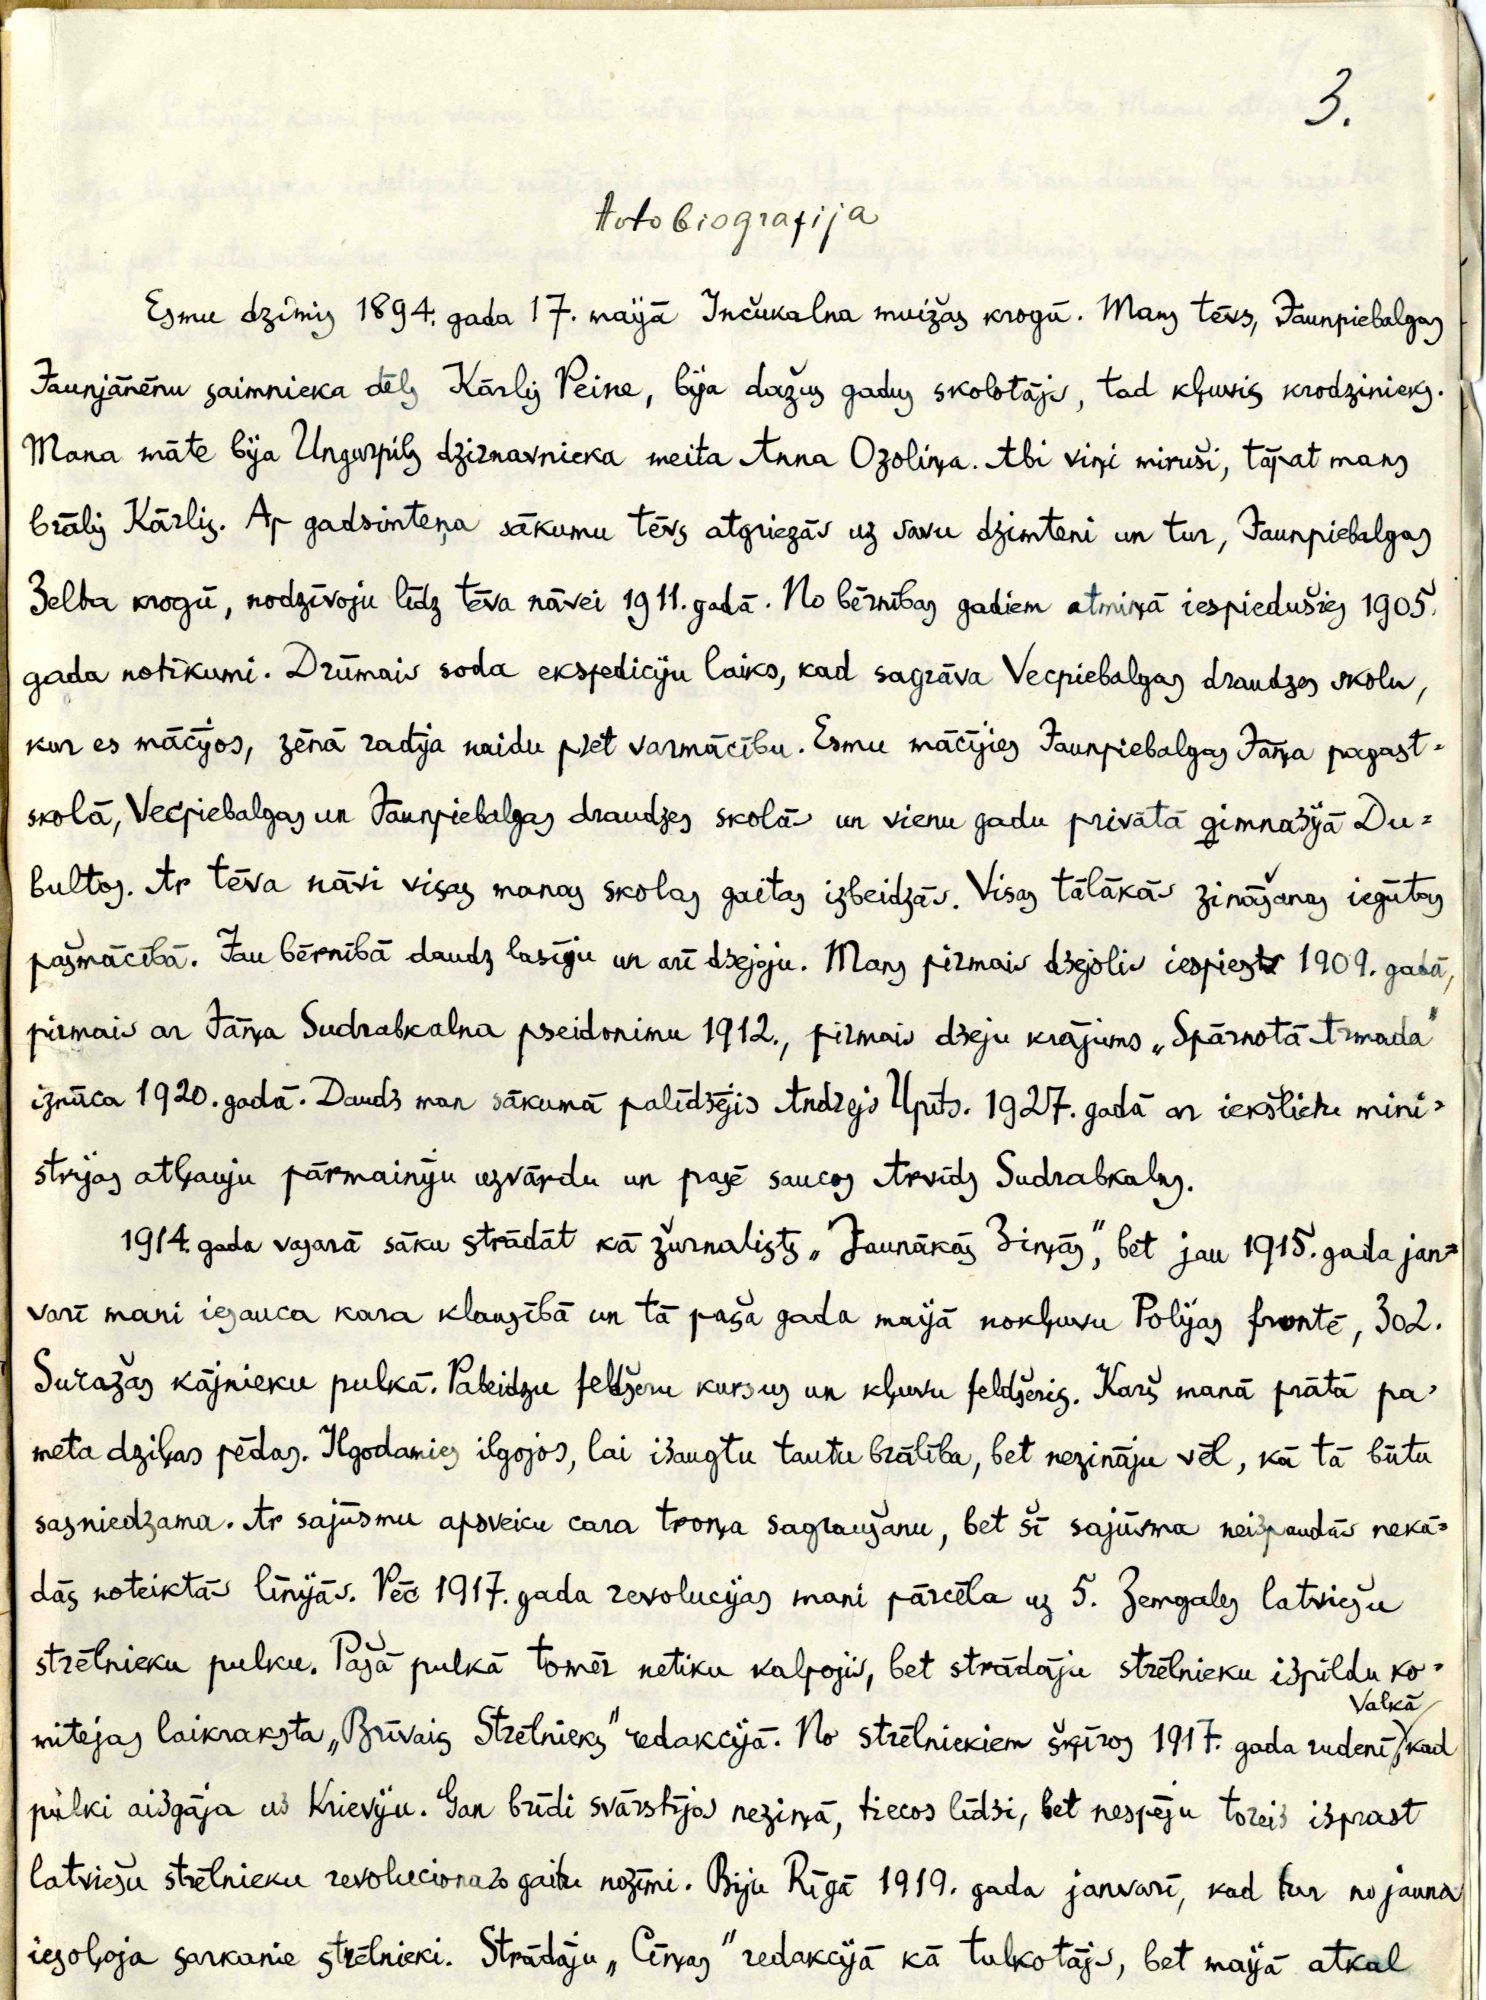 3.
Autobiografija
Esmu dzimis 1894. gada 17. maijā Inčukalna muižas krogū. Mans tēvs, Jaunpiebalgas
Jaunjānēnu saimnieka dēls Kārlis Peine, bija dažus gadus skolotājs, tad kļuvis krodzinieks.
Mana māte bija Ungurpils dzirnavnieka meita Anna Ozoliņa. Abi viņi miruši, tāpat mans
brālis Kārlis. Ap gadsimteņa sākumu tēvs atgriezās uz savu dzimteni un tur, Jaunpiebalgas
Zelta krogū, nodzīvoju līdz tēva nāvei 1911. gadā. No bērnības gadiem atmiņā iespiedušies 1905.
gada notikumi. Drūmais soda ekspediciju laiks, kad sagrāva Vecpiebalgas draudzes skolu,
kur es mācījos, zēnā radīja naidu pret varmācību. Esmu mācījies Jaunpiebalgas Jāņa pagast-
skolā, Vecpiebalgas un Jaunpiebalgas draudzes skolās un vienu gadu privātā ģimnazijā Du-
bultos. Ar tēva nāvi visas manas skolas gaitas izbeidzās. Visas tālākās zināšanas iegūtas
pašmācībā. Jau bērnībā daudz lasīju un arī dzejoju. Mans pirmais dzejolis iespiests 1909. gadā,
pirmais ar Jāņa Sudrabkalna pseidonimu 1912., pirmais dzeju krājums „Spārnotā Armada"
iznāca 1920. gadā. Daudz man sākumā palīdzējis Andrejs Upīts. 1927. gadā ar iekšlietu mini-
strijas atļauju pārmainīju uzvārdu un pasē saucos Arvīds Sudrabkalns.
1914. gada vasarā sāku strādāt kā žurnalists „Jaunākās Ziņās", bet jau 1915. gada jan-
varī mani iesauca kara klausībā un tā paša gada maijā nokļuvu Polijas frontē, 302.
Suražas kājnieku pulkā. Pabeidzu feldšeru kursus un kļuvu feldšeris. Karš manā prātā pa-
meta dziļas pēdas. Ilgodamies ilgojos, lai izaugtu tautu brālība, bet nezināju vēl, kā tā būtu
sasniedzama. Ar sajūsmu apsveicu cara troņa sagraušanu, bet šī sajūsma neizpaudās nekā-
dās noteiktās līnijās. Pēc 1917. gada revolucijas mani pārcēla uz 5. Zemgales latviešu
strēlnieku pulku. Pašā pulkā tomēr netiku kalpojis, bet strādāju strēlnieku izpildu ko-
mitejas laikraksta „Brīvais Strēlnieks" redakcijā. No strēlniekiem šķīros 1917. gada rudenī Valkā, kad
pulki aizgāja uz Krieviju. Gan brīdi svārstījos neziņā, tiecos līdzi, bet nespēju toreiz izprast
latviešu strēlnieku revolucionaro gaitu nozīmi. Biju Rīgā 1919. gada janvarī, kad tur no jauna
iesoļoja sarkanie strēlnieki. Strādāju „Cīņas" redakcijā kā tulkotājs, bet maijā atkal